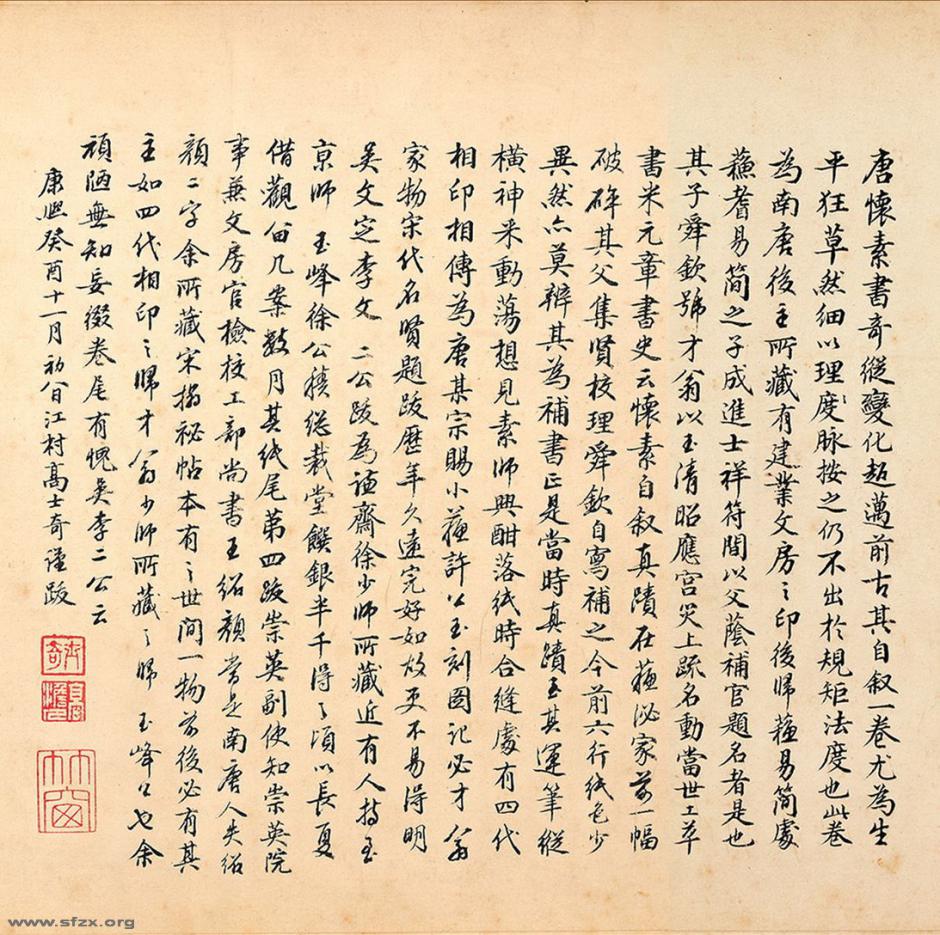 唐懷素書奇縱變化超邁前古其自叙一卷尤為生
平狂草然細以理度脉按之仍不出於規矩法度也此卷
為南唐後主所藏有建業文房之印後歸蘓易簡處
蘓耆易簡之子成進士祥符間以父蔭補官題名者是也
其子舜欽號才翁以玉清昭應宮災上疏名動當世工草
書米元章書史云懷素自叙真蹟在蘓泌家前一幅
破碎其父集賢校理舜欽自寫補之今前六行紙色少
異然亦莫辨其為補書正是當時真蹟至其運筆縱
橫神采動蕩想見素師興酣落紙時合縫處有四代
相印相傳為唐某宗賜小蘓許公玉刻圖記必才翁
家物宋代名賢題跋歷年久遠完好如故更不易得明
吳文定李文 二公跋為謙齋徐少師所藏近有人持至
京師 玉峰徐公積總裁堂饌銀半千得之頃以長夏
借觀留几案數月其紙尾第四跋崇英副使知崇英院
事兼文房官檢校工部尚書王紹顏當是南唐人失紹
顏二字余所藏宋搨祕帖本有之世間一物前後必有其
主如四代相印之歸才翁少師所藏之歸 玉峰公也余
頑陋無知妄綴卷尾有愧吳李二公云
康熙癸酉十一月初八日江村高士奇謹跋
竹窗
www.sfzx.org